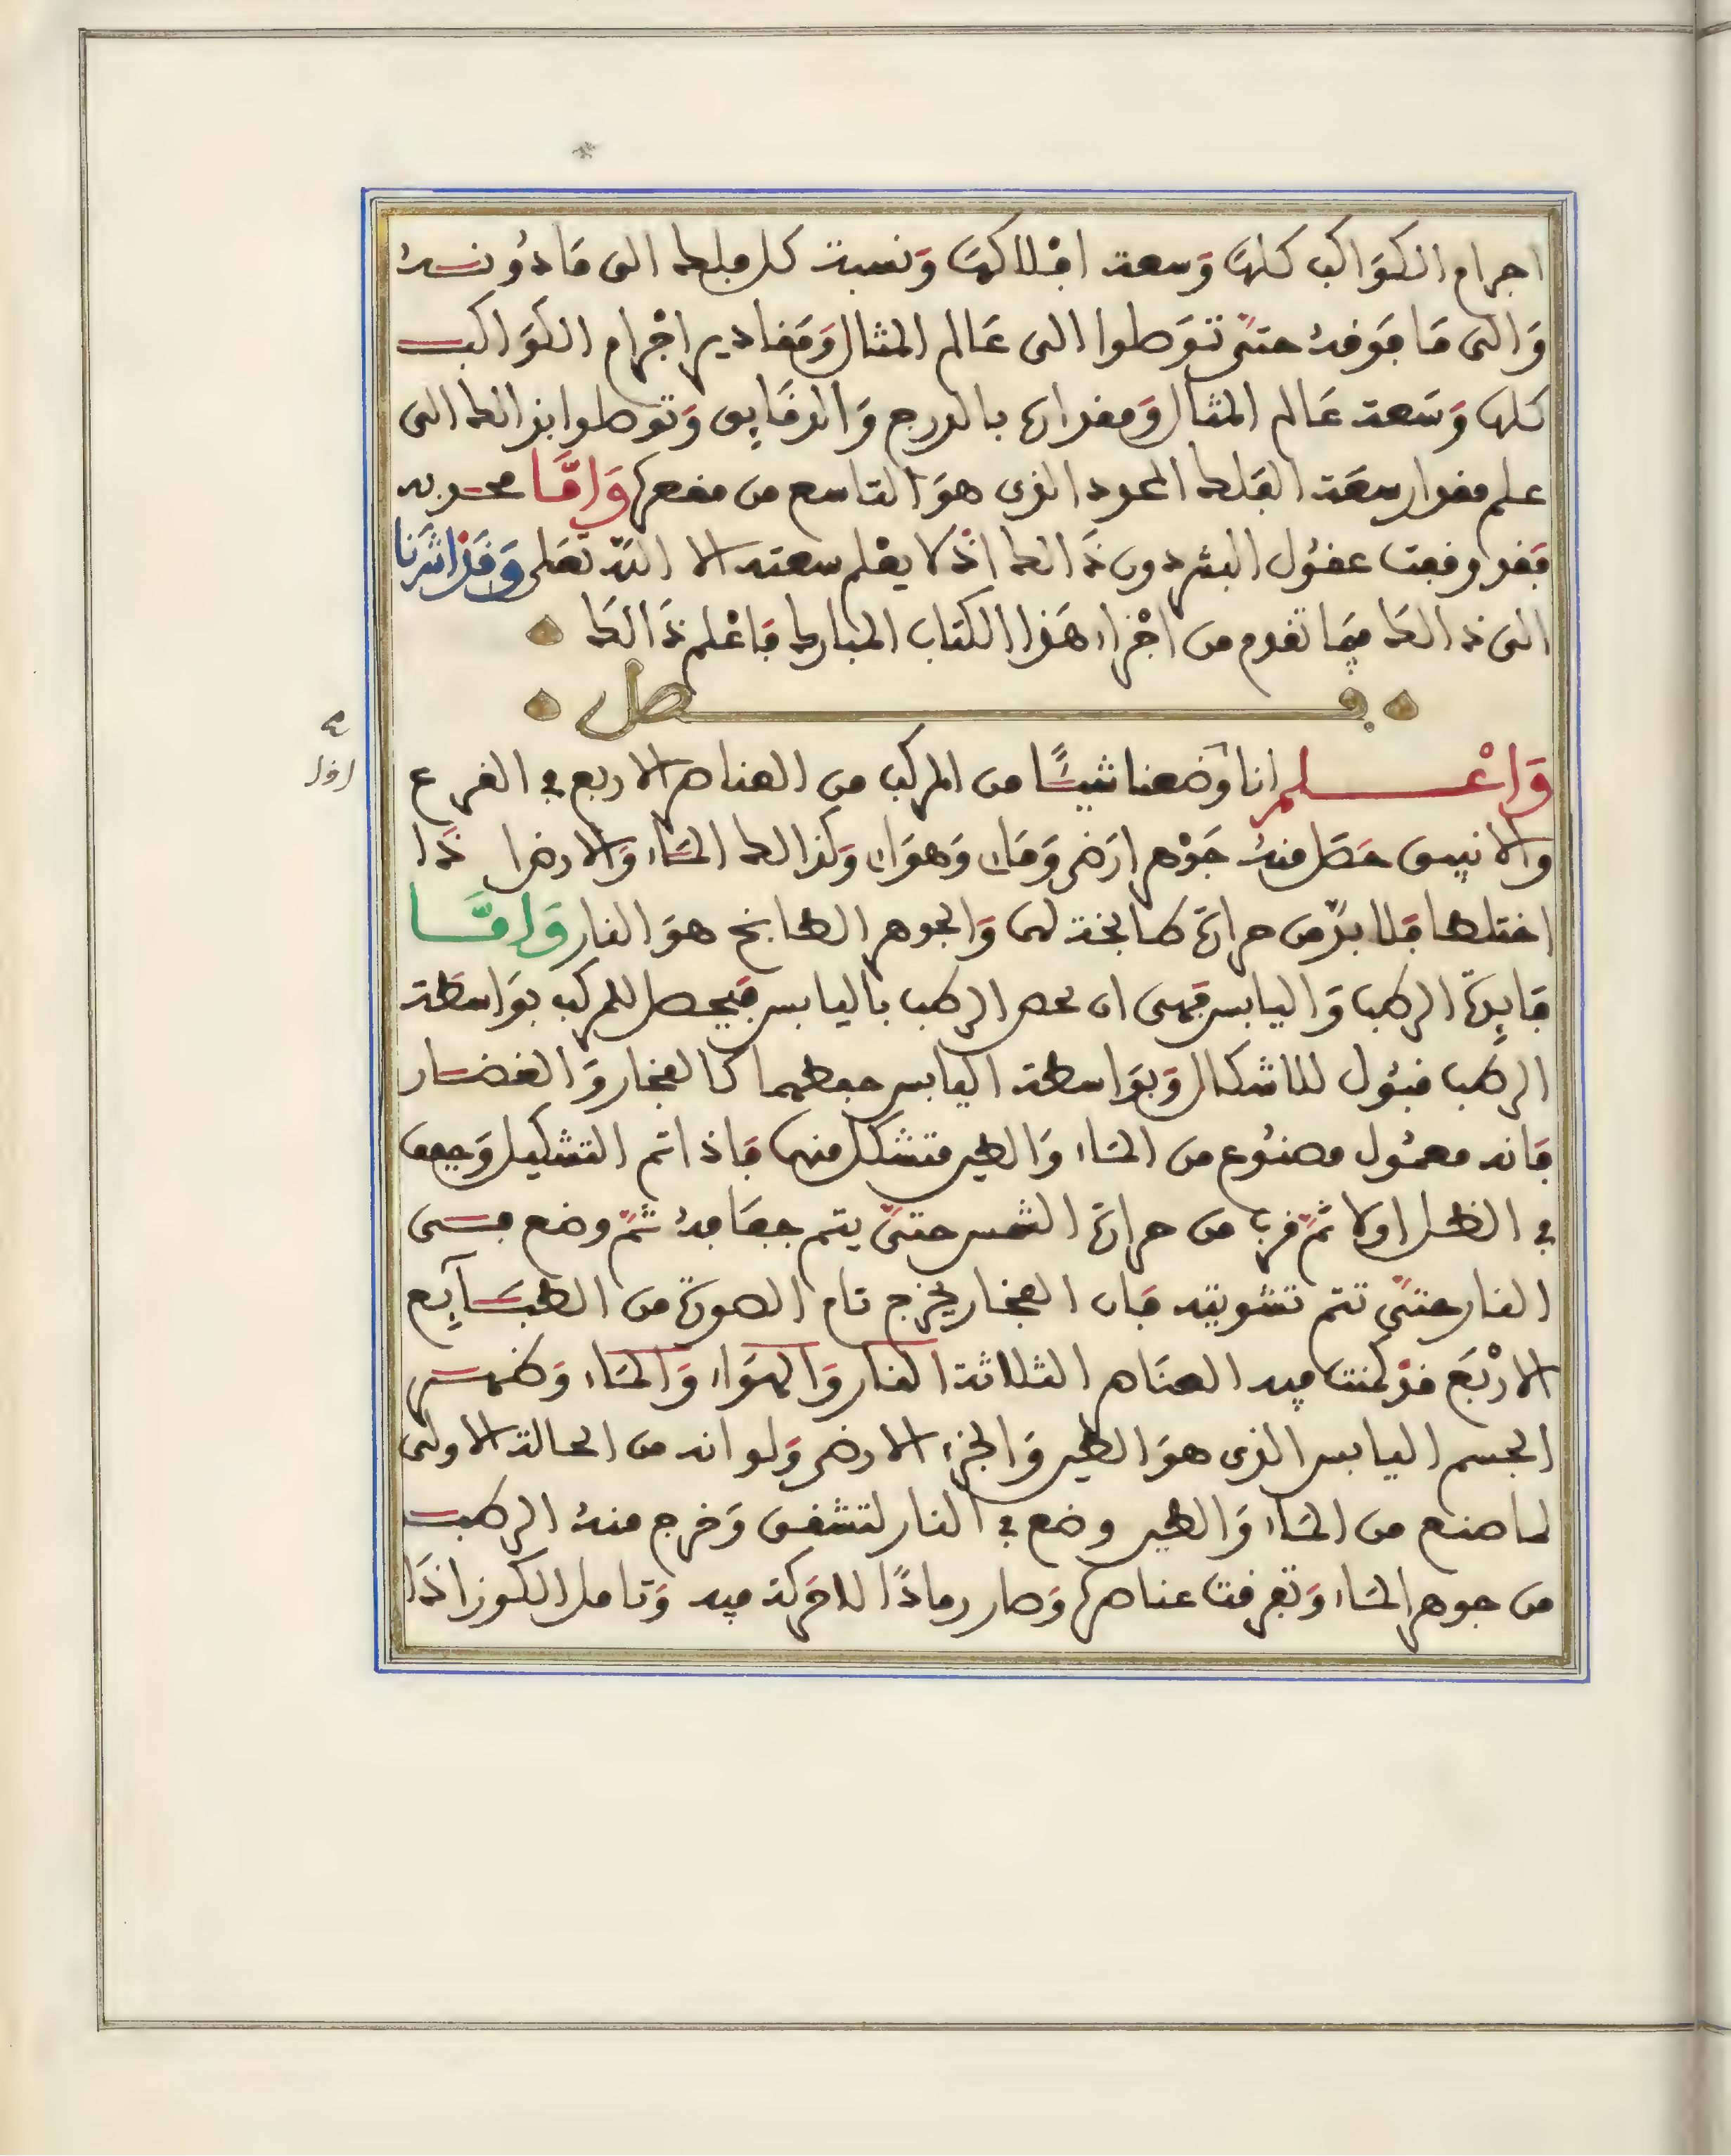 اجرام الكواكب كلها وسعة افلاكها ونسبة كل فلك الى ما دونه
والى ما فوقه حتى توصلوا الى عالم المثال ومقادير اجرام الكواكب
كلها وسعة عالم المثال ومقداره بالدرج والدقايق وتوصلوا بذالك الى
علم مقدار سعة الفلك المحدد الذى هو التاسع من مقعرها واما محدبه
فقد وقفت عقول البشر دون ذالك اذ لا يعلم سعته الا الله تعلى وقد اشرنا
الى ذالك فيما تقدم من اجزاء هذا الكتاب المبارك فاعلم ذالك
فصل
واعلم انا وضعنا شيئا من المركب من العناصر الاربع في القرع
والانبيق حصل منه جوهر ارضى وماء وهواء وكذالك الماء والارض اذا
اختلطا فلا بد من حرارة طابخة لهما والجوهر الطابخ هو النار واما
فايدة الرطب واليابس فهى ان يحصر الرطب باليابس فيحصل للمركب بواسطة
الرطب قبول للاشكال وبواسطة اليابس حفظهما كالفخار والغضار
فانه معمول مصنوع من الماء والطين متشكل منهما فاذا تم التشكيل وجفف
في الظل اولا ثم قرب من حرارة الشمس حتى يتم جفافه ثم وضع فى
النار حتى تتم تشويته فان الفخار يخرج تام الصورة من الطبآيع
الاربع قد كمنت فيه العناصر الثلاثة النار والهواء والماء وظهر
الجسم اليابس الذى هو الطين والجزء الارضى ولو انه من الحالة الاولى
لما صنع من الماء والطين وضع في النار لتشقق وخرج منه الرطب
من جوهر الماء وتفرقت عناصرها وصار رمادا لا حركة فيه وتامل الكوز اذا